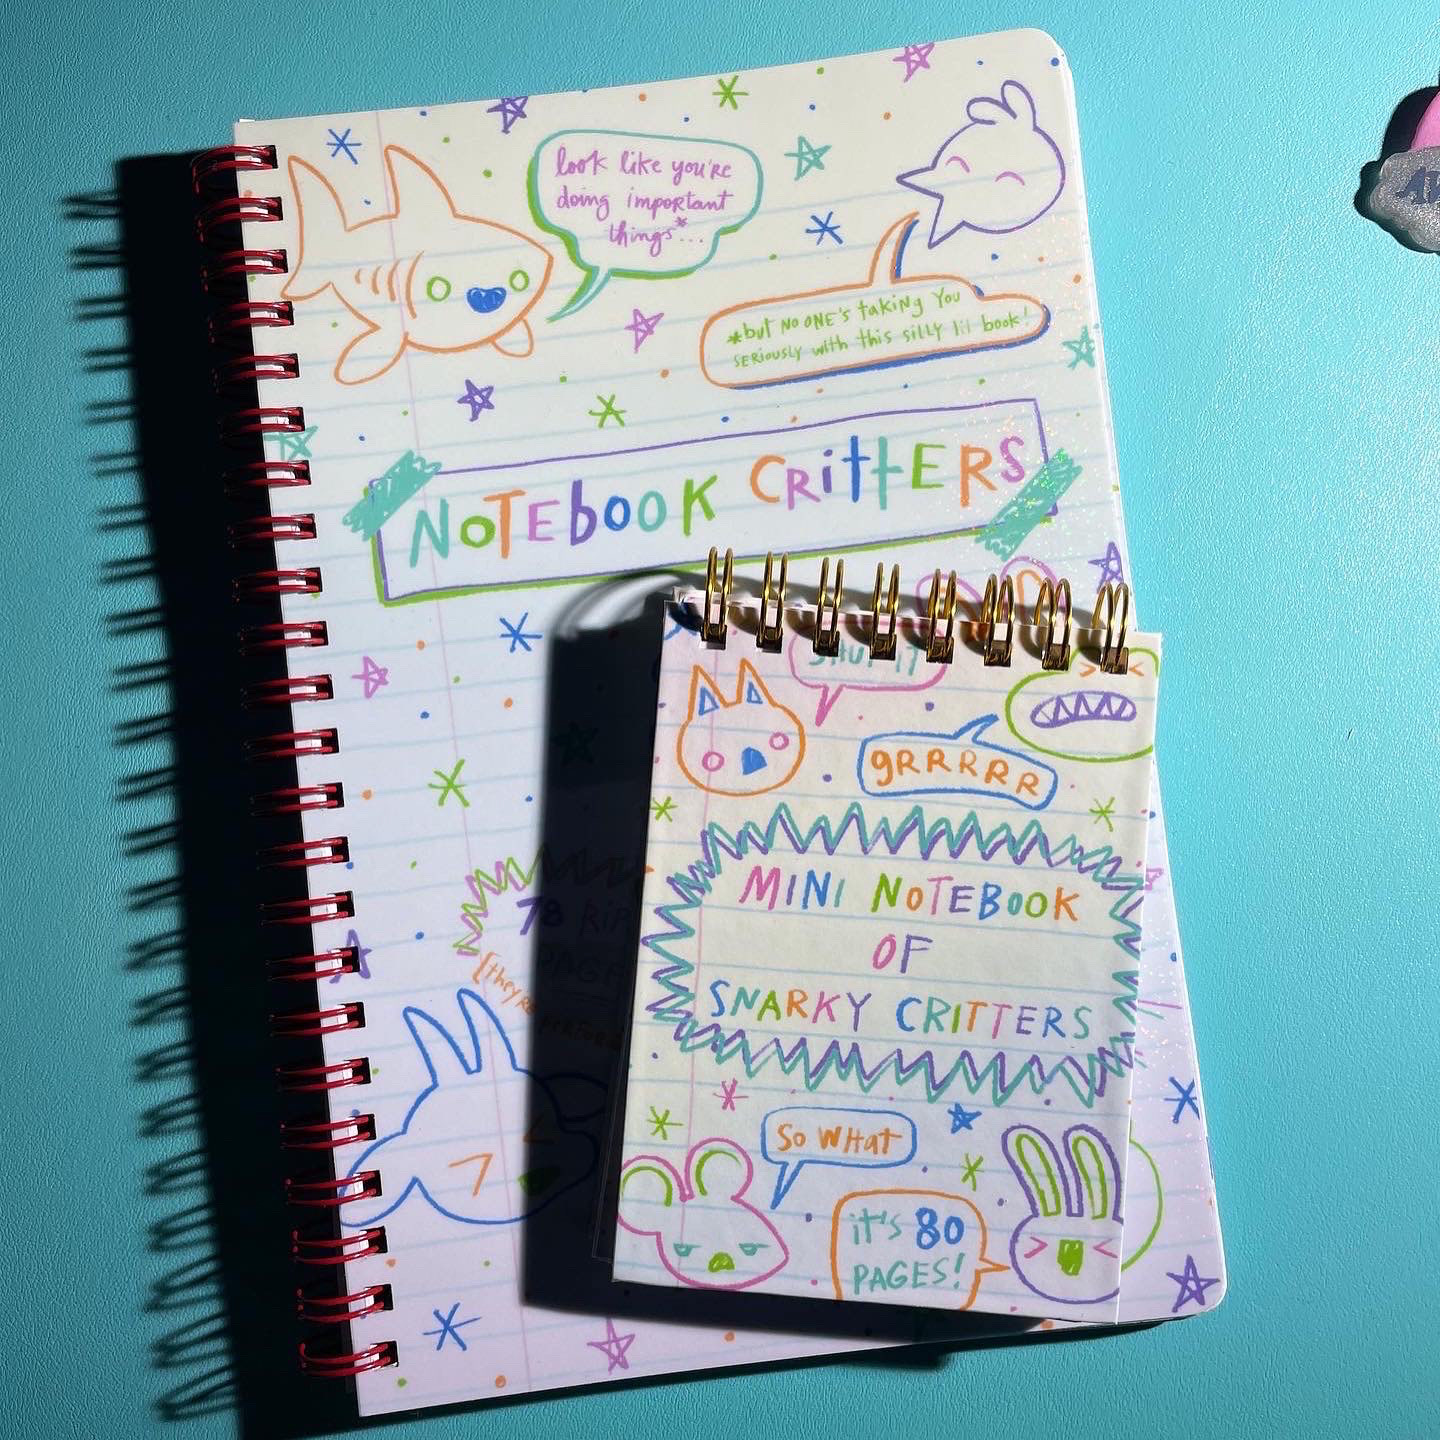 look like you're
doing important
things*...
*but NO ONE'S taking you
seriously with this silly lil book!
NOTEBOOK CRITTERS
SHUT IT
gRRRRR
MINI NOTEBOOK
OF
SNARKY CRITTERS
78
PAGE
[they're
So WHat
it's 80
PAGES!